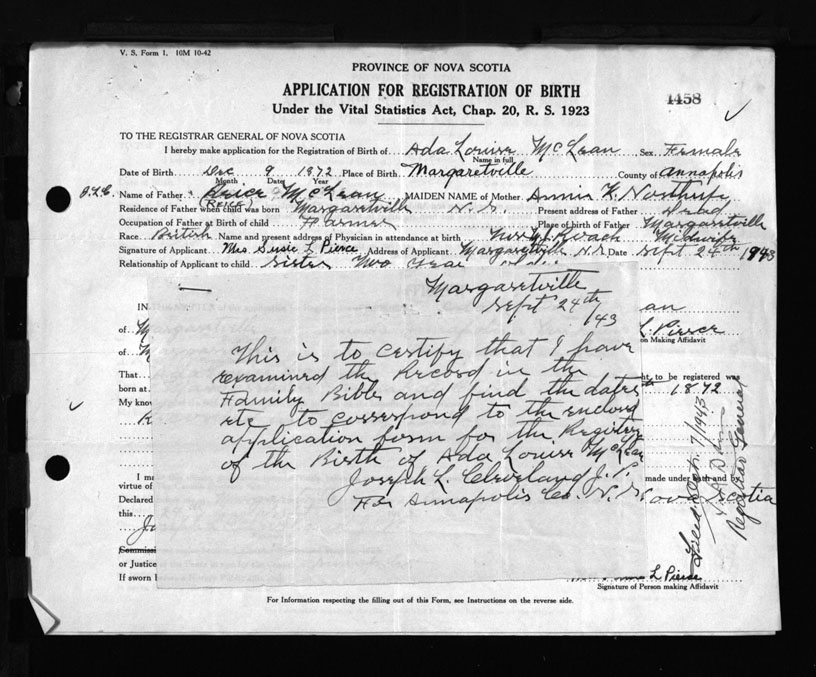 V. S. Form 1. 10M 10-42
PROVINCE OF NOVA SCOTIA
APPLICATION FOR REGISTRATION OF BIRTH
Under the Vital Statistics Act, Chap. 20, R. S. 1923
4458
TO THE REGISTRAR GENERAL OF NOVA SCOTIA
I hereby make application for the Registration of Birth of Ada Louise McLean Sex Female
Name in full
Date of Birth Dec 9 1872 Place of Birth Margaretville County of Annapolis
Month Date Year
Name of Father McLean MAIDEN NAME of Mother Annie
(REICE)
Residence of Father when child was born Margaretville N.S. Present address of Father Dead
Occupation of Father at Birth of child Farmer Place of birth of Father Margaretville
Race British Name and present address of Physician in attendance at birth Roach Midwife
Signature of Applicant Mrs Susie L Pierce Address of Applicant Margaretville N.S Date Sept 24th 1943
Relationship of Applicant to child Sister
Margaretville
Sept 24th /43
This is to certify that I have
examined the Record in the
Family Bible and find the dates
etc to correspond to the enclosed
application form for the Registry
of the Birth of Ada Louise McLean
Joseph L. Cleveland J. P.
For Annapolis Co. N. S.
IN
of M
of M
That
born at
My know
I ma
virtue of
Declared
this
Jo
Commissi
or Justice
If sworn
an
L. Pierce
on Making Affidavit
nt, to be registered was
1872
made under oath and by
ova Scotia
/1943
Registrar General
L Pierce
Signature of Person making Affidavit
For Information respecting the filling out of this Form, see Instructions on the reverse side.